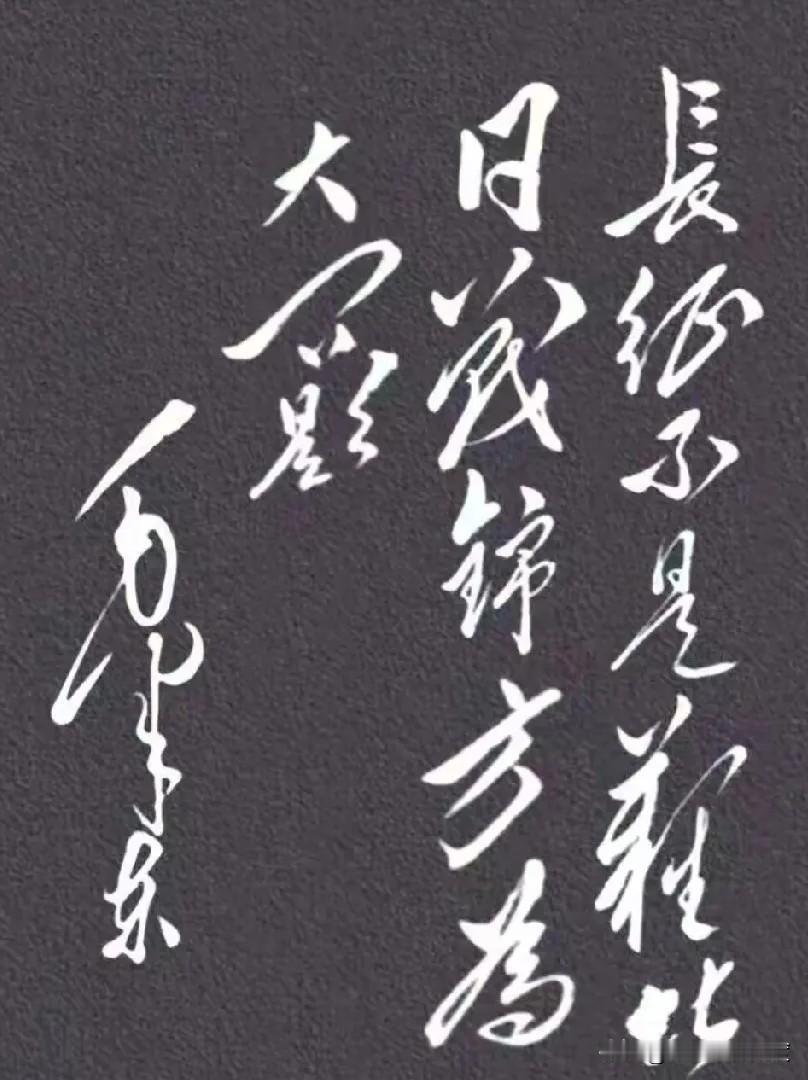 長征不是難堪
日戰錦方為
大问題
毛泽东